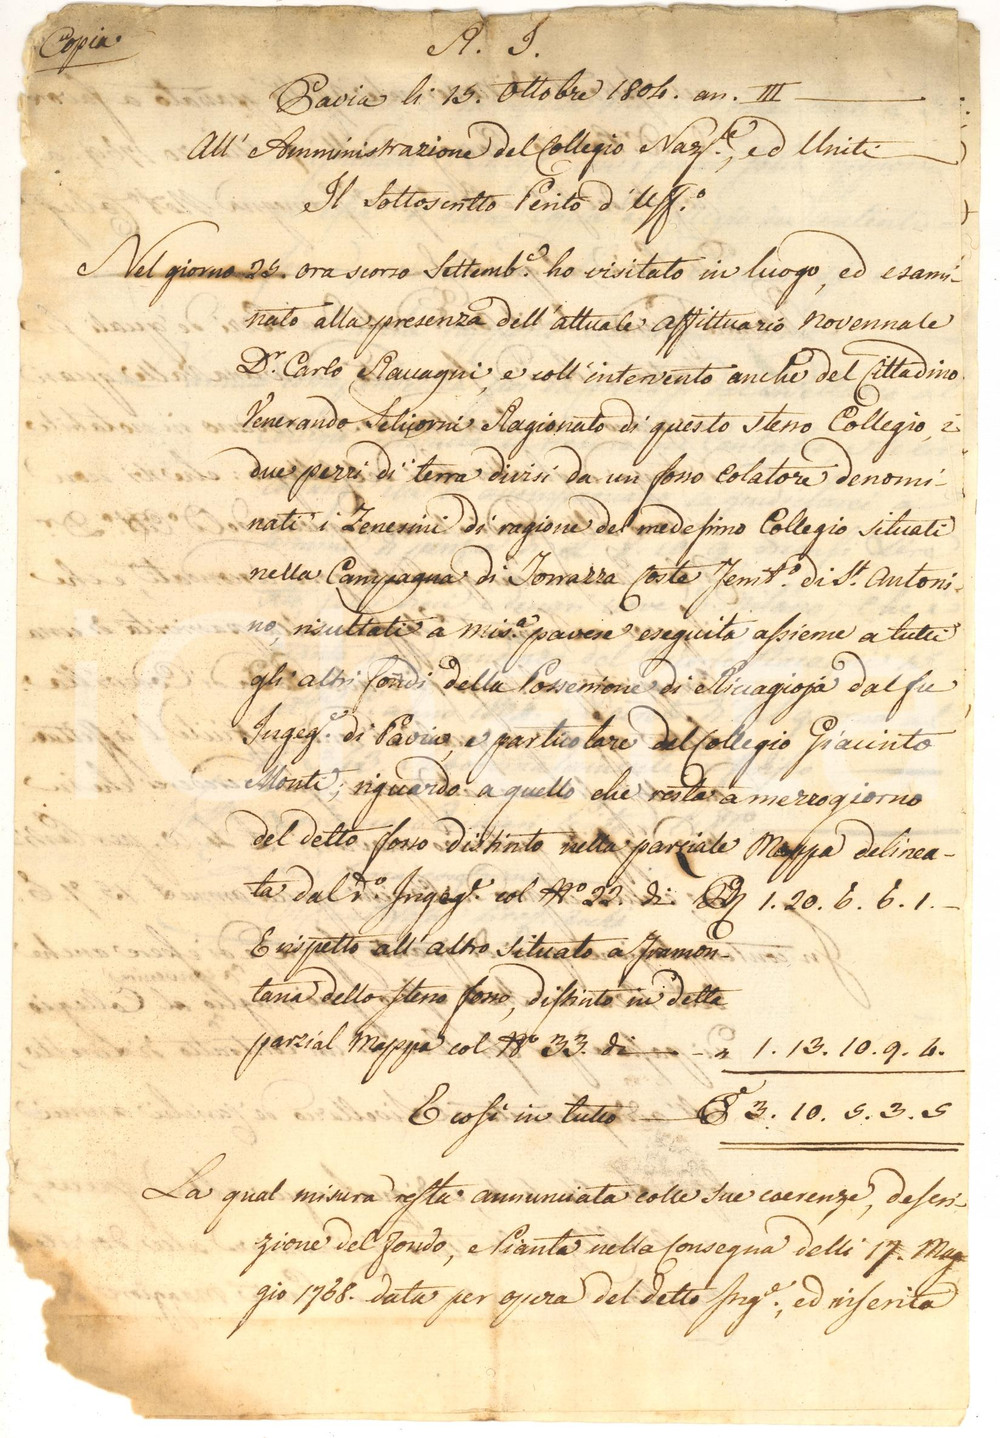 Copia
R. I.
Pavia li 15. Ottobre 1804. an. III
All' Amministrazione del Collegio Naz.le, ed Uniti
Il Sottoscritto Perito d'Uff.o
Nel giorno 25. ora scorso Settemb.e ho visitato in luogo, ed esami-
nato alla presenza dell'attuale affittuario novennale
D.r Carlo Ravagni, e coll'intervento anche del Cittadino
Venerando Ragionato di questo stesso Collegio, i
due pezzi di terra divisi da un fosso colatore denomi-
nati i Zenesini di ragione del medesimo Collegio situati
nella Campagna di Torrazza Coste Territ.o di St. Antoni-
no, risultati a mis.a pavese eseguita assieme a tutti
gli altri fondi della Possessione di Rivagioja dal fu
Ingeg.e di Pavia, e particolare del Collegio Giacinto
Monti; riguardo a quello che resta a mezzogiorno
del detto fosso distinto nella parziale Mappa delinea-
ta dal d.o Ingeg.e col N.o 22. di P.e 1. 20. 6. 6. 1.-
E rispetto all'altro situato a Tramon-
tana dello stesso fosso, distinto in detta
parzial Mappa col N.o 33. di - - " 1. 13. 10. 9. 4.
E così in tutto P.e 3. 10. 5. 3. 5
La qual misura resta annunciata colle sue coerenze, descri-
zione del fondo, e Pianta nella Consegna delli 17. Mag-
gio 1768. data per opera del detto Ing.e, ed inserita